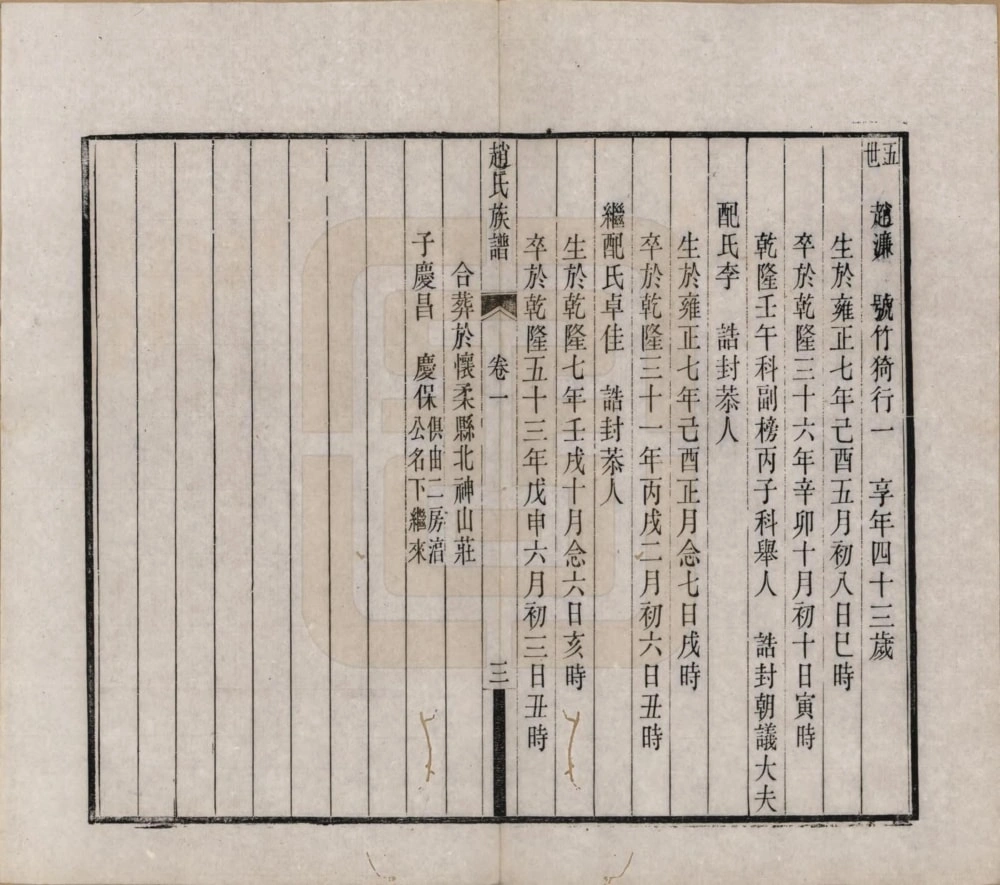 五世
趙濂　號竹猗行一　享年四十三歲
生於雍正七年己酉五月初八日巳時
卒於乾隆三十六年辛卯十月初十日寅時
乾隆壬午科副榜丙子科舉人　誥封朝議大夫
配氏李　誥封恭人
生於雍正七年己酉正月念七日戌時
卒於乾隆三十一年丙戌二月初六日丑時
繼配氏卓佳　誥封恭人
生於乾隆七年壬戌十月念六日亥時
卒於乾隆五十三年戊申六月初三日丑時
趙氏族譜　卷一　三
合葬於懷柔縣北神山莊
子慶昌　慶保俱由二房濇公名下繼來